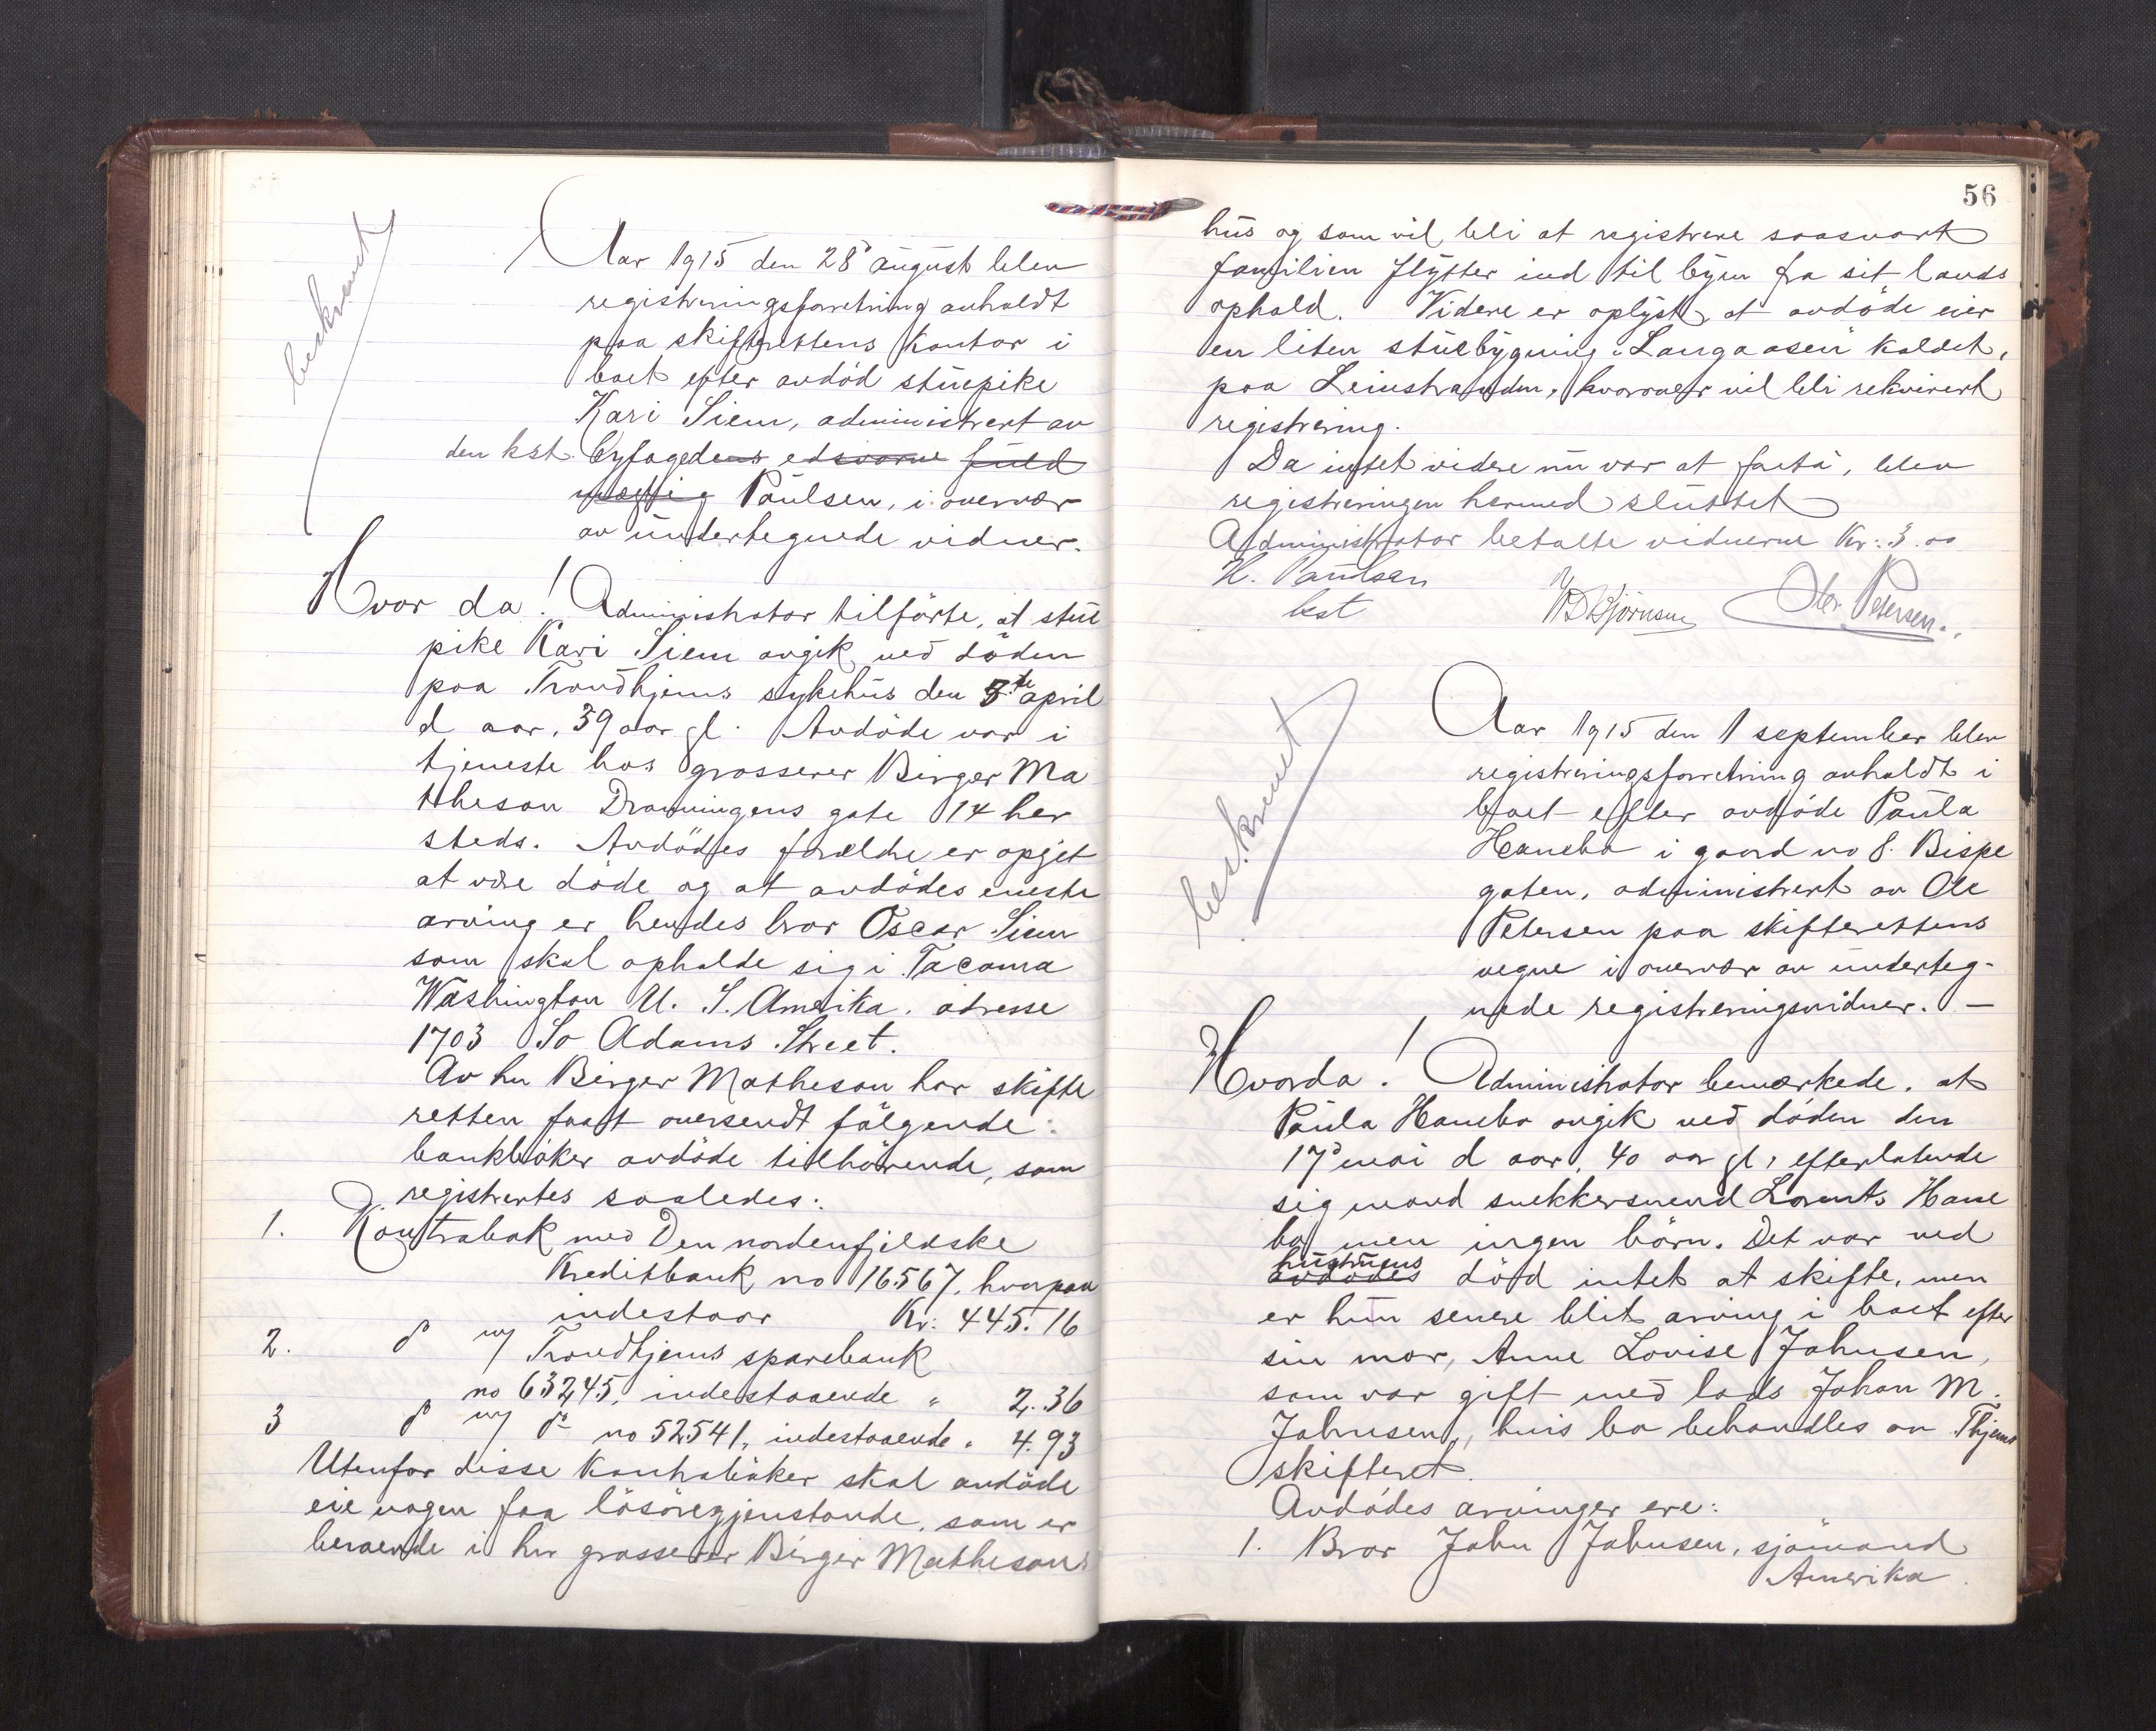 beskrevet
Aar 1915 den 28d august blev
registreringsforretning avholdt
paa skifterettens kontor i
boet efter avdød stuepike
Kari Siem, administrert av
den kst. byfogedens edsvorne fuld
mægtig Paulsen, i overvær
av undertegnede vidner.
Hvor da! Administrator tilførte, at stue
pike Kari Siem avgik ved døden
paa Trondhjems sykehus den 5te april
d aar, 39 aar gl. Avdøde var i
tjeneste hos grosserer Birger Ma
theson Dronningens gate 14 her
steds. Avdødes forældre er opgit
at være døde og at avdødes eneste
arving er hendes bror Oscar Siem
som skal opholde sig i Tacoma
Washington U. S. Amerika. adresse
1703 So Adams Street.
Av hr Birger Matheson har skifte
retten faat oversendt følgende
bankbøker avdøde tilhørende, som
registrertes saaledes:
1. Kontrabok med Den nordenfjeldske
Kreditbank no 16567, hvorpaa
indestaar Kr: 445.16
2. do m/ Trondhjems sparebank
no 63245, indestaaende " 2.36
3 do m/ do no 52541, indestaaende " 4.93
Utenfor disse kontrabøker skal avdøde
eie nogen faa løsøregjenstande, som er
beroende i hr grosserer Birger Mathesons
56
hus og som vil bli at registrere saasnart
familien flytter ind til byen fra sit lands
ophold. Videre er oplyst, at avdøde eier
en liten stuebygning "Langaasen" kaldet,
paa Leinstranden, hvorover vil bli rekvirert
registrering.
Da intet videre nu var at foreta, blev
registreringen hermed sluttet
Administrator betalte vidnerne Kr: 3.00
H. Paulsen
kst
Bjørnsen
Petersen.
beskrevet
Aar 1915 den 1 september blev
registreringsforretning avholdt i
boet efter avdøde Paula
Hanebo i gaard no 8. Bispe
gaten, administrert av Ole
Petersen paa skifterettens
vegne i overvær av underteg-
nede registreringsvidner. –
Hvorda! Administrator bemærkede, at
Paula Hanebo avgik ved døden den
17d mai d aar, 40 aar gl, efterlatende
sig mand snekkersvend Lorents Hane
bo men ingen børn. Det var ved
hustruens
avdødes død intet at skifte, men
er hun senere blit arving i boet efter
sin mor, Anne Lovise Johnsen,
som var gift med lods Johan M.
Johnsen, hvis bo behandles av Thjems
skifteret.
Avdødes arvinger ere:
1. Bror John Johnsen, sjømand
Amerika.